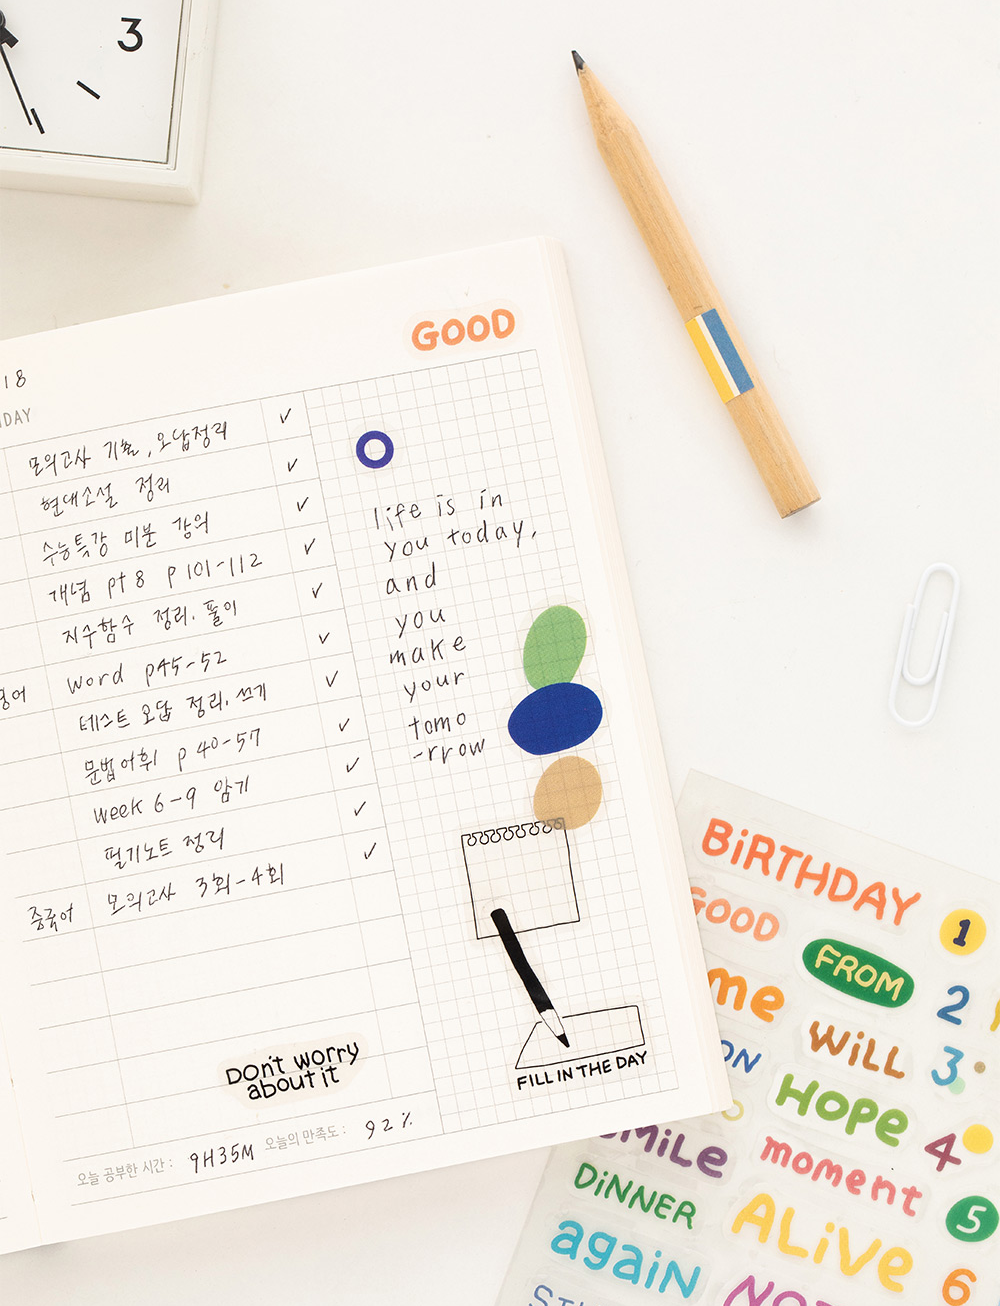 3
GOOD
18
모의고사 기출, 오답정리
현대소설 정리
수능특강 미분 강의
개념 pt 8 p 101-112
지수함수 정리. 풀이
word p45-52
테스트 오답 정리. 쓰기
문법어휘 p 40-57
week 6-9 암기
필기노트 정리
중국어 모의고사 3회-4회
life is in
you today,
and
you
make
your
tomo
-rrow
FILL IN THE DAY
Don't worry
about it
오늘 공부한 시간 : 9H35M 오늘의 만족도 : 92%
BiRTHDAY
1
GOOD
FROM
2
me
WiLL
3
ON
HOPE
4
SMiLE
moment
5
DiNNER
ALiVE
6
agaiN